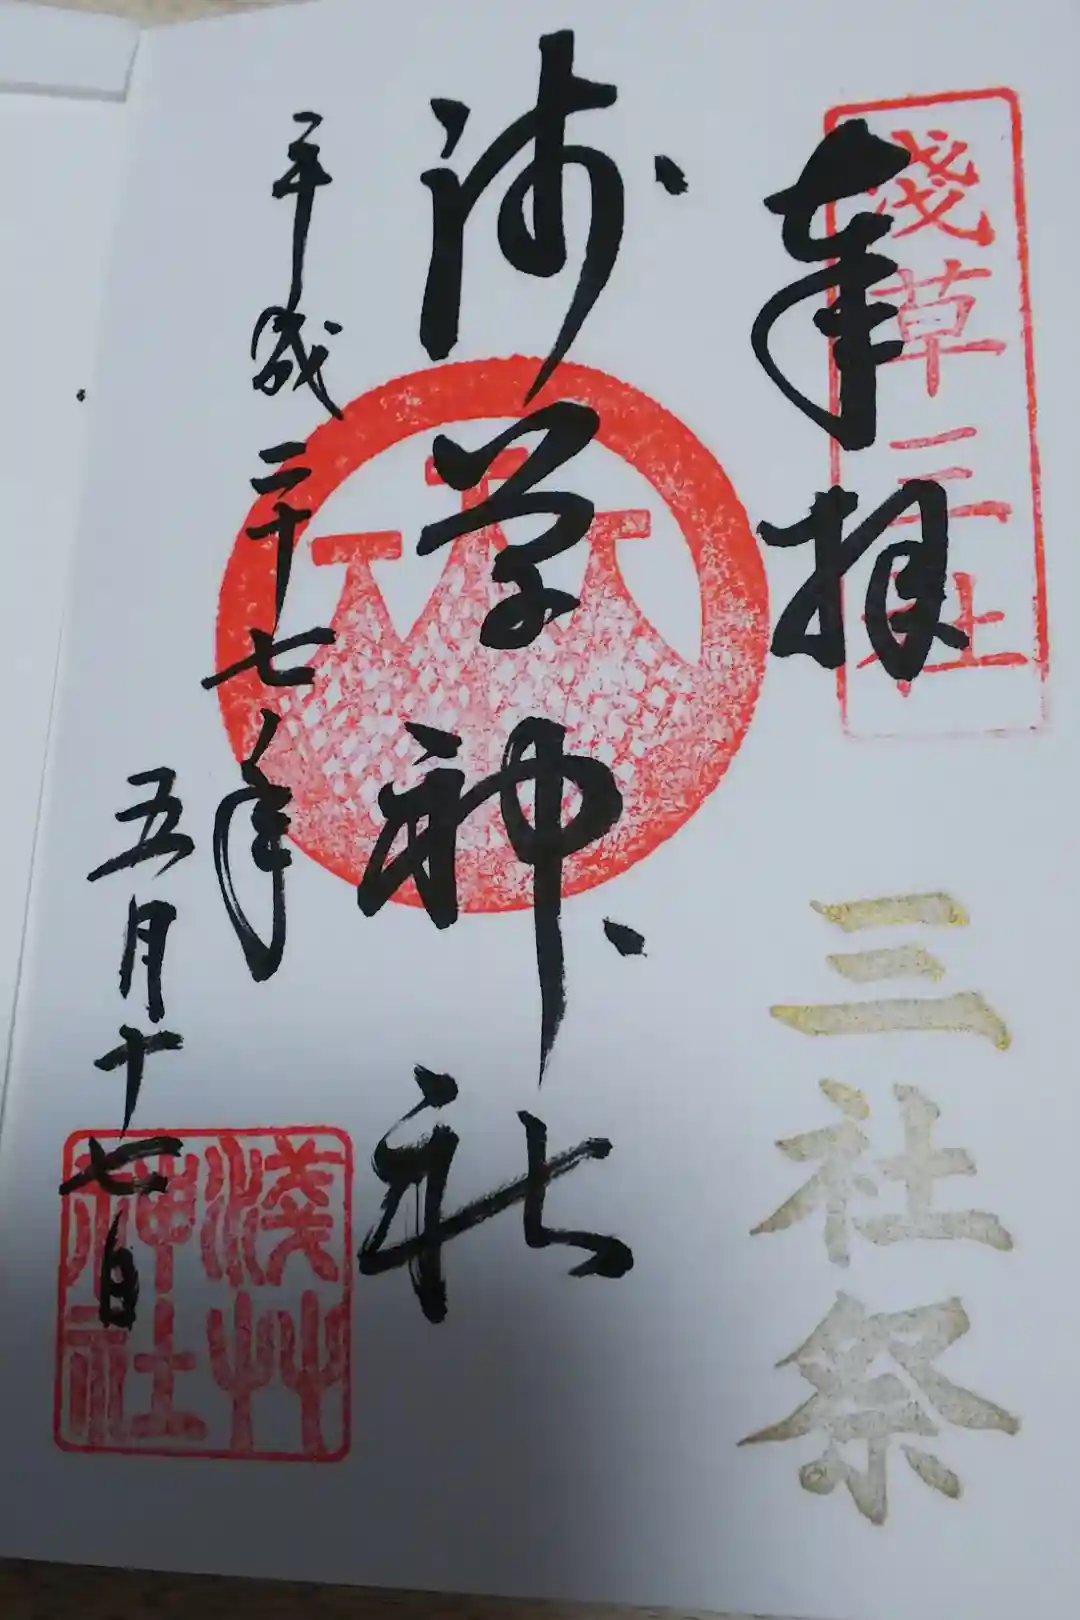 奉拝
淺草三社
三社祭
浅草神社
平成二十七年
五月十七日
淺艸
神社